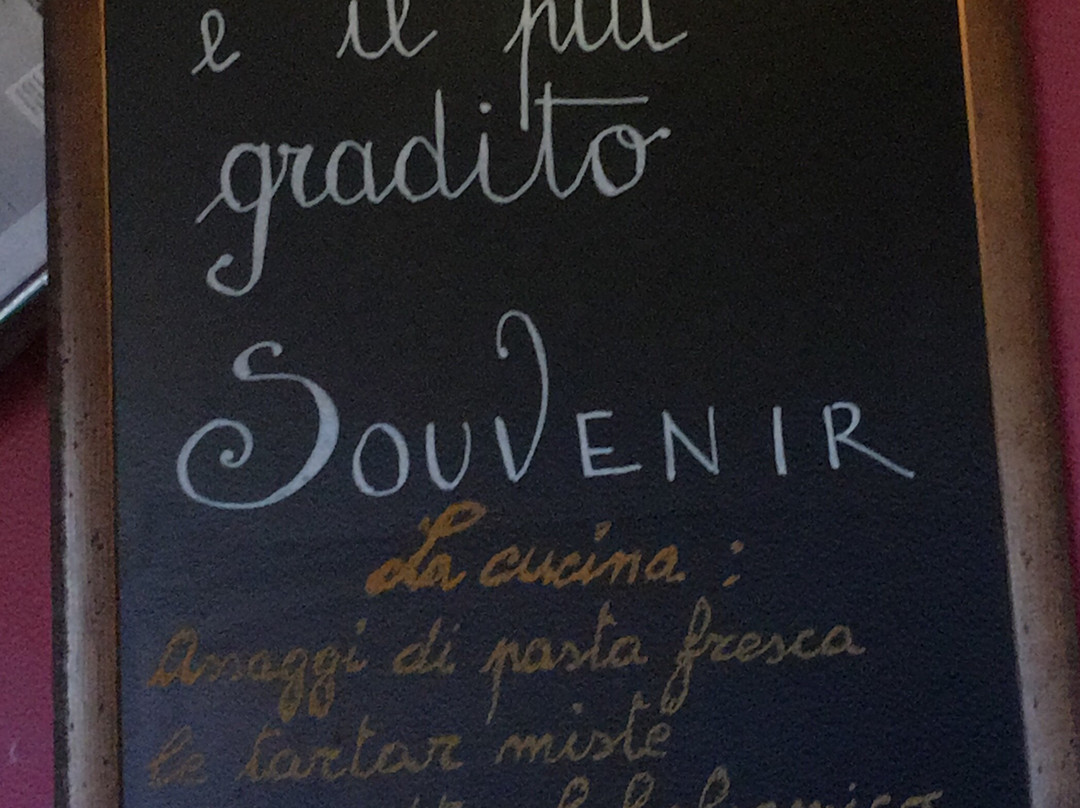 e il più
gradito
SOUVENIR
La cucina :
Assaggi di pasta fresca
le tartar miste